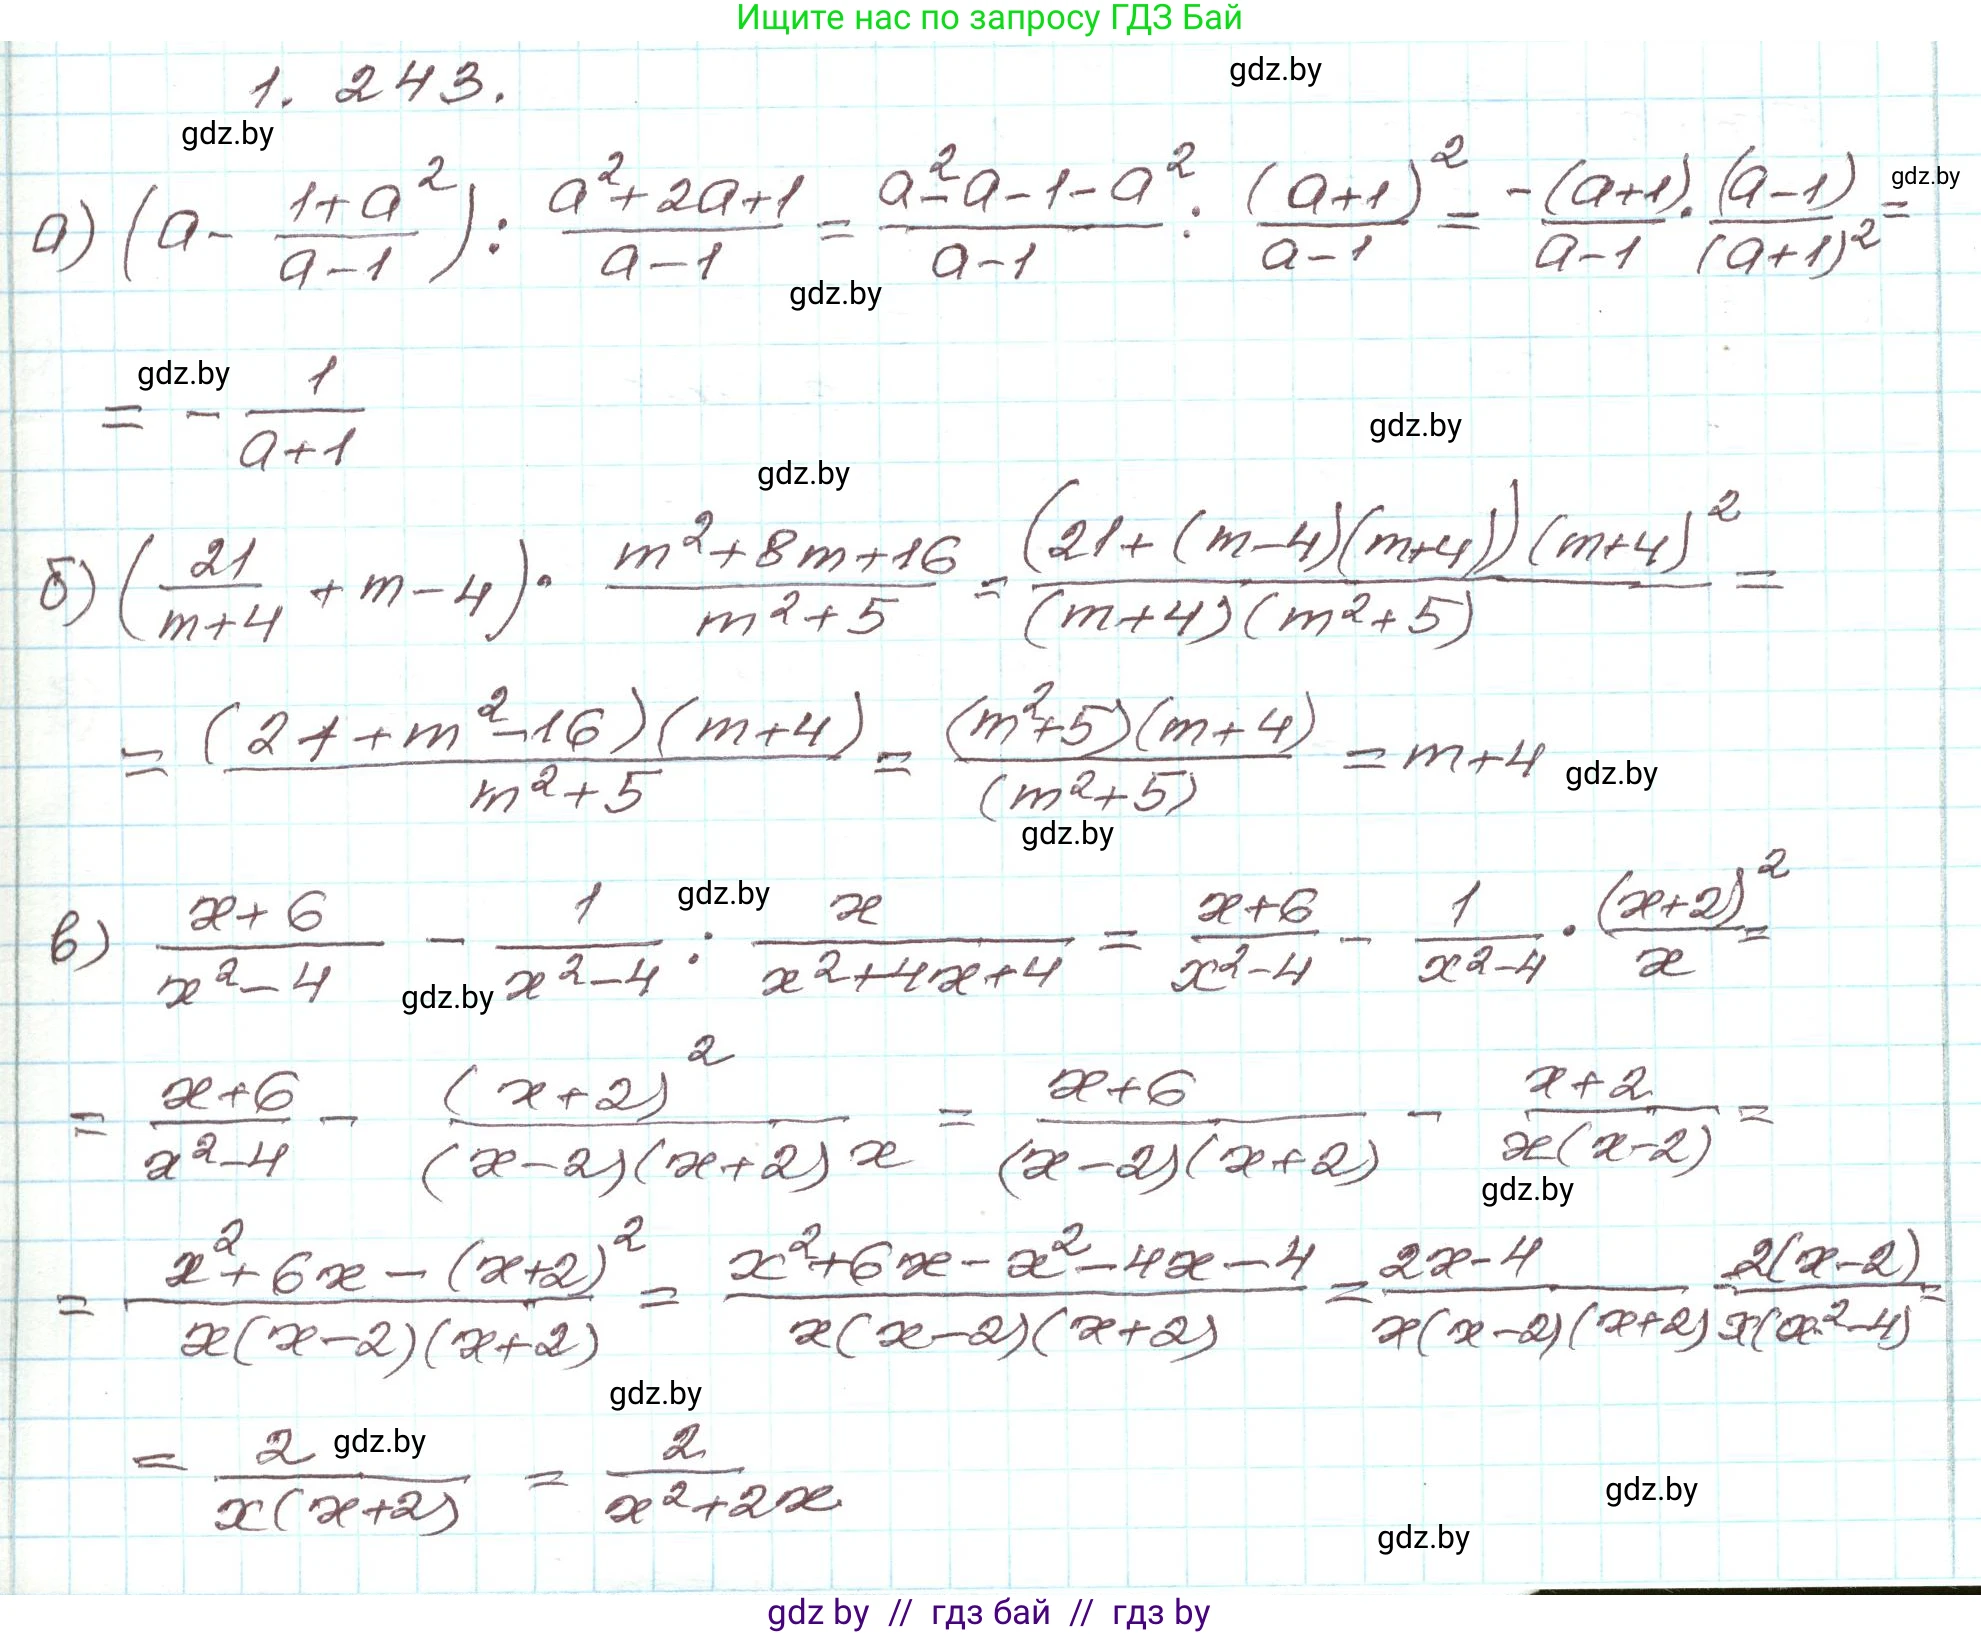 Ищите нас по запросу ГДЗ Бай
1. 243.
gdz.by
gdz.by
а) (a - \frac{1+a^2}{a-1}) : \frac{a^2+2a+1}{a-1} = \frac{a^2-a-1-a^2}{a-1} : \frac{(a+1)^2}{a-1} = \frac{-(a+1)}{a-1} · \frac{(a-1)}{(a+1)^2} =
gdz.by
gdz.by
gdz.by
= - \frac{1}{a+1}
gdz.by
gdz.by
б) (\frac{21}{m+4} + m - 4) · \frac{m^2+8m+16}{m^2+5} = \frac{(21+(m-4)(m+4))(m+4)^2}{(m+4)(m^2+5)} =
= \frac{(21+m^2-16)(m+4)}{m^2+5} = \frac{(m^2+5)(m+4)}{(m^2+5)} = m+4
gdz.by
gdz.by
gdz.by
в) \frac{x+6}{x^2-4} - \frac{1}{x^2-4} : \frac{x}{x^2+4x+4} = \frac{x+6}{x^2-4} - \frac{1}{x^2-4} · \frac{(x+2)^2}{x} =
gdz.by
= \frac{x+6}{x^2-4} - \frac{(x+2)^2}{(x-2)(x+2)x} = \frac{x+6}{(x-2)(x+2)} - \frac{x+2}{x(x-2)} =
gdz.by
= \frac{x^2+6x-(x+2)^2}{x(x-2)(x+2)} = \frac{x^2+6x-x^2-4x-4}{x(x-2)(x+2)} = \frac{2x-4}{x(x-2)(x+2)} \frac{2(x-2)}{x(x^2-4)} =
gdz.by
gdz.by
= \frac{2}{x(x+2)} = \frac{2}{x^2+2x}
gdz.by
gdz.by
gdz by // гдз бай // гдз by